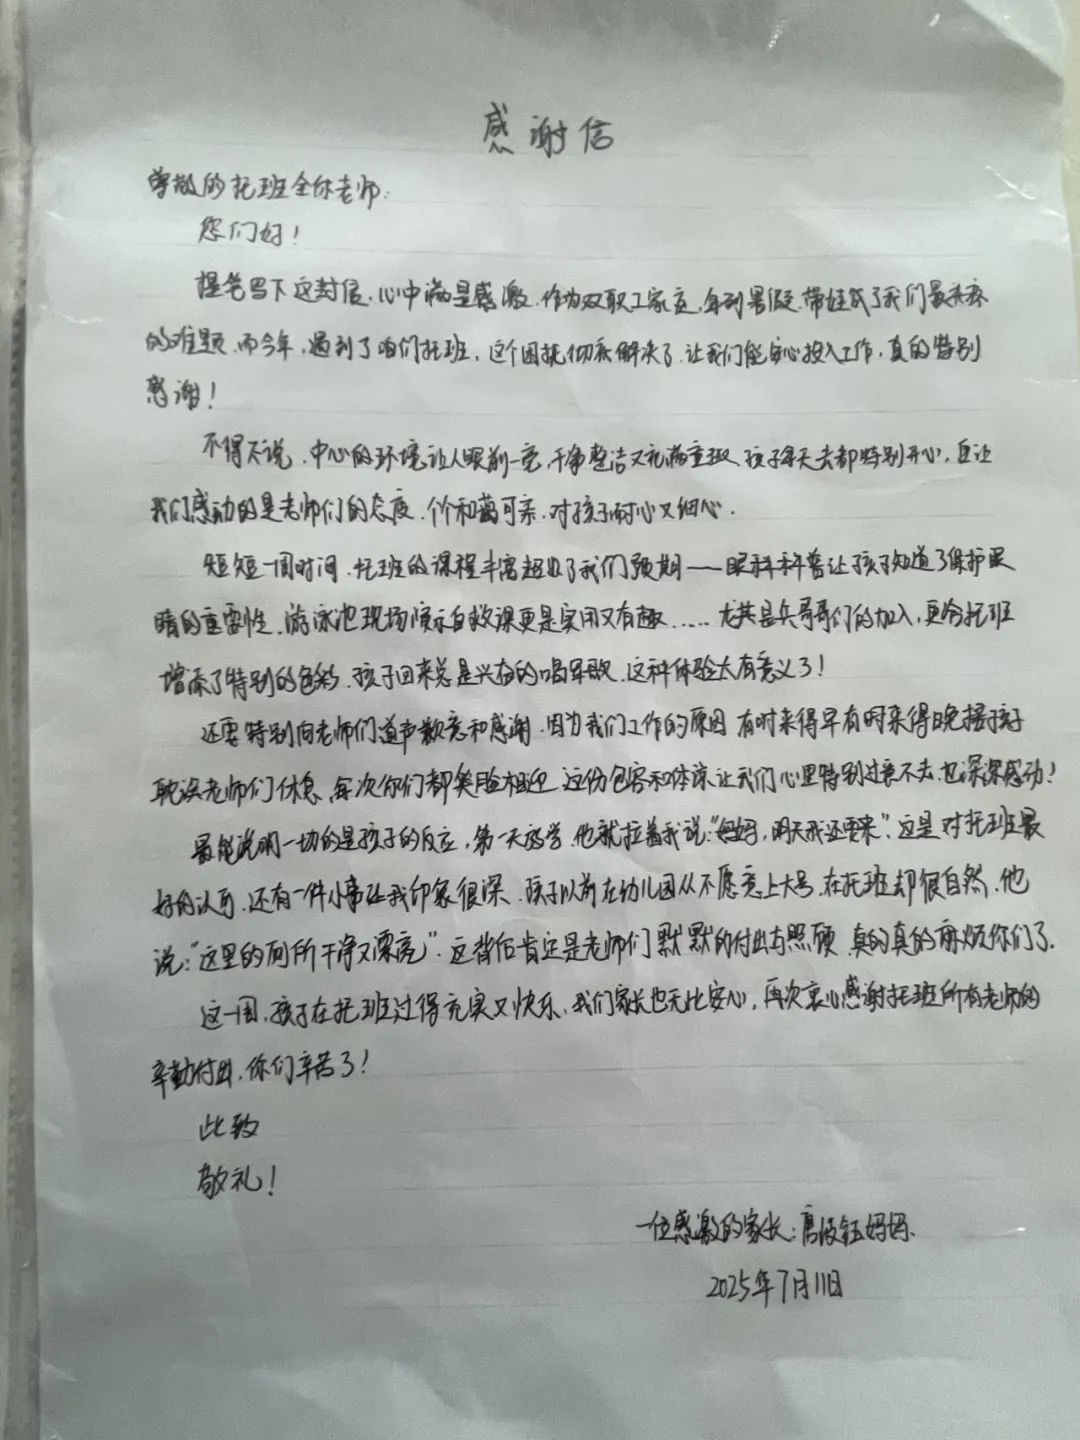 感谢信
尊敬的托班全体老师:
您们好!
提笔写下这封信,心中满是感激。作为双职工家庭,每到暑假,带娃成了我们最头疼
的难题。而今年,遇到了咱们托班,这个困扰彻底解决了,让我们能安心投入工作,真的特别
感谢!
不得不说,中心的环境让人眼前一亮,干净整洁又充满童趣,孩子每天去都特别开心,且让
我们感动的是老师们的态度,个个和蔼可亲,对孩子耐心又细心。
短短一周时间,托班的课程丰富超出了我们预期——眼科科普让孩子知道了保护眼
睛的重要性,游泳池现场演示自救课更是实用又有趣……尤其是兵哥哥们的加入,更给托班
增添了特别的色彩,孩子回来总是兴奋的唱军歌,这种体验太有意义了!
还要特别向老师们道声歉意和感谢,因为我们工作的原因,有时来得早有时来得晚,接孩子
耽误老师们休息,每次你们都笑脸相迎,这份包容和体谅让我们心里特别过意不去,也深深感动!
最能说明一切的是孩子的反应,第一天放学,他就拉着我说:“妈妈,明天我还要来”,这是对托班最
好的认可,还有一件小事让我印象很深,孩子以前在幼儿园从不愿意上大号,在托班却很自然,他
说:“这里的厕所干净又漂亮”。这背后肯定是老师们默默的付出与照顾,真的真的麻烦你们了。
这一周,孩子在托班过得充实又快乐,我们家长也无比安心,再次衷心感谢托班所有老师的
辛勤付出,你们辛苦了!
此致
敬礼!
一位感激的家长:钰妈妈
2025年7月11日